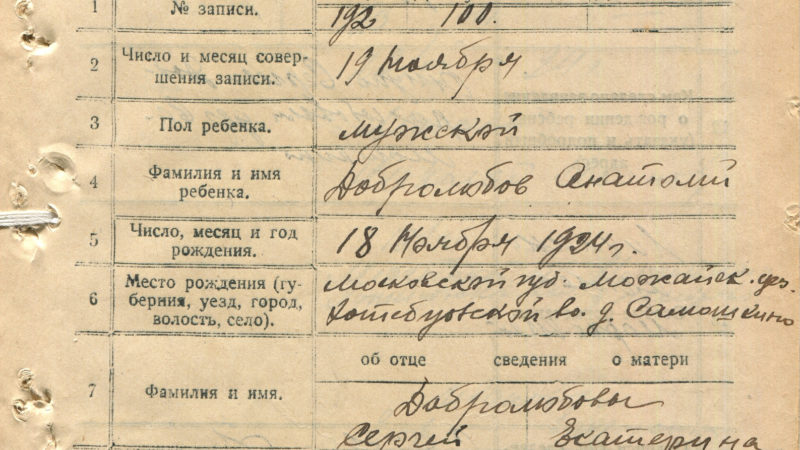 1 № записи. 192 100.
2 Число и месяц совер-
шения записи. 19 Ноября
3 Пол ребенка. мужской
4 Фамилия и имя
ребенка. Добролюбов Анатолий
5 Число, месяц и год
рождения. 18 Ноября 1924 г.
6 Место рождения (гу-
берния, уезд, город,
волость, село). Московской губ. Можайск. уез.
вол. д. Самошкино
об отце сведения о матери
7 Фамилия и имя. Добролюбовы
Сергей Екатерина